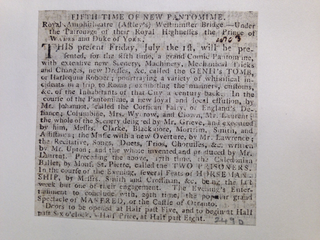 FIFTH TIME OF NEW PANTOMIME.
Royal Amphitheatre (Astley's) Westminster Bridge.—Under
the Patronage of their Royal Highnesses the Prince of
Wales and Duke of York.
THIS present Friday, July the 1st, will be pre-
sented, for the fifth time, a grand Comic Pantomime,
with extensive new Scenery, Machinery, Mechanical Tricks
and Changes, new Dresses, &c. called the GENII's TOMB,
or Harlequin
in a trip to
&c. of the Inhabitants of that City a century back. In the
course of the Pantomime, a new loyal and local effusion, by
Mr. Johannot, called the Corsican Fairy, or England's De-
fiance; Columbine, Mrs. Wybrow, and Clown, Mr. Laurent;
the whole of the Scenery designed by Mr. Grieve, and executed
by him, Messrs. Clarke, Blackmore, Morrim, Smith, and
Assistants; the Music with a new Overture, by Mr. Lawrence;
the Recitative, Songs, Duets, Trios, Chorusses, &c. written
by Mr. Upton; and the whole invented and produced by Mr.
Laurent. Preceding the above, 17th time, the Caledonian
Ballet, by Mons. St. Pierre, called the TWO FARMERS.
In the course of the Evening, several Feats of HORSEMAN-
SHIP, by Messrs. Smith and Crossman, &c. being the last
week but one of their engagement. The Evening's Enter-
tainment to conclude with, 29th time, the popular grand
Spectacle of MANFRED, or the Castle of Otranto.
Doors to be opened at Half past Five, and to begin at Half
past Six o'clock. Half Price, at Half past Eight.